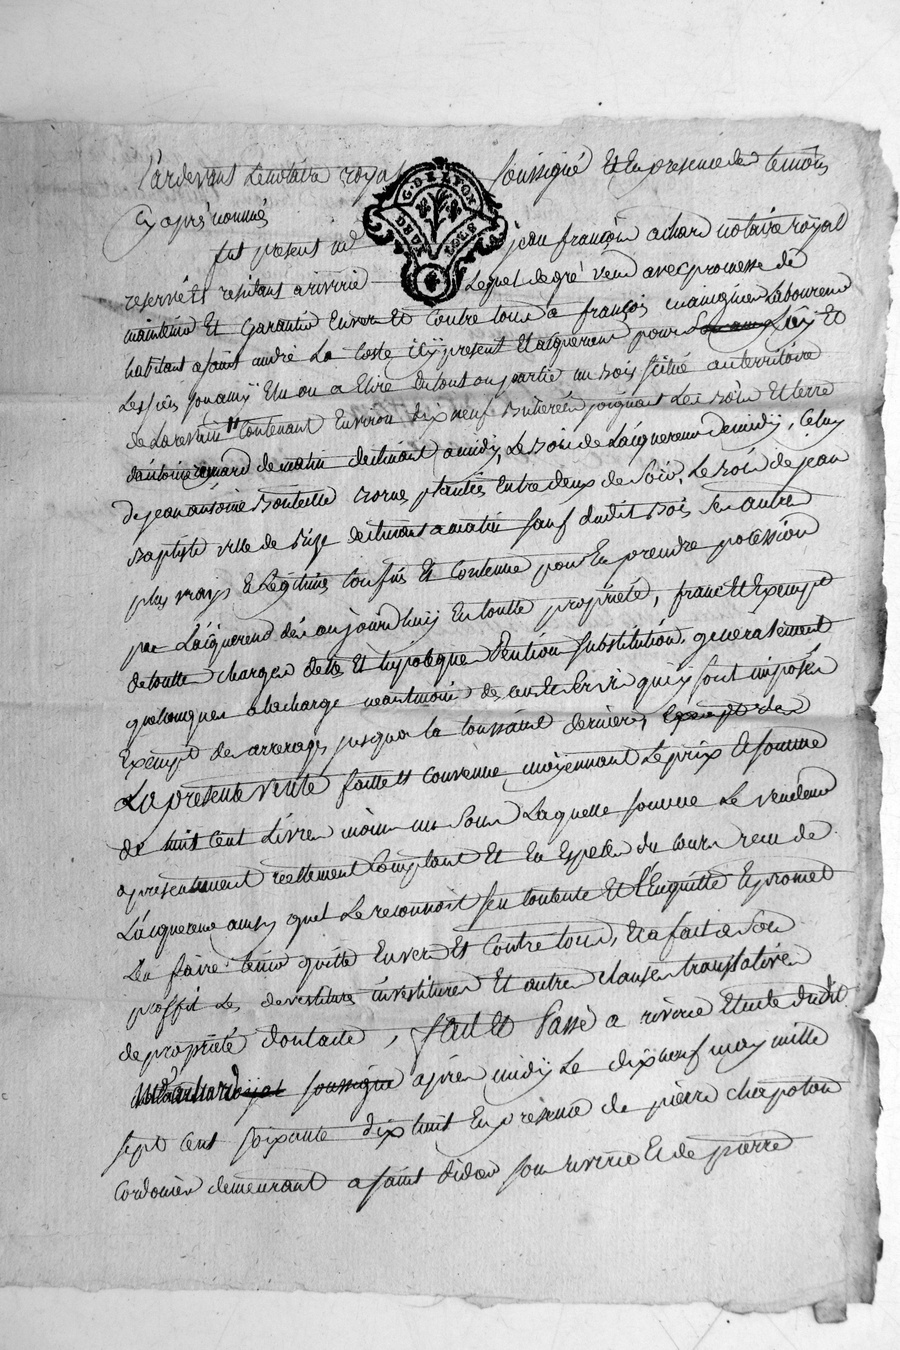 Pardevant Le notaire royal soussigné Et En presence des temoins
Cy aprés nommés
G. DE LYON
DEUX SOLS
fut present me jean françois achard notaire royal
reservé Et residant a riverie Lequel de gré vend avec promesse de
maintenir Et Garantir Envers Et Contre tous a françois Laboureur
habitant a saint andré La Coste icy present Et acquereur pour Luy Et
Les siens son amy Elu ou a Elire En tout ou partie un bois scitué au territoire
de Contenant Environ dix neuf joignant Les bois Et terre
d'antoine de matin declinant a midy, Le bois de L'acquereur de midy, Celuy
de jean antoine bornes plantées Entre deux de soir, Le bois de jean
Baptiste ville de bize declinant a matin sauf dudit bois ses autres
plus vrays Et Légitimes Confins Et Contenue pour En prendre possession
par L'acquereur dés aujourd'huy En toutte proprieté, franc Et Exempt
de touttes charges dette Et hypoteque Pention substitution generalement
quelconques a la charge neantmoins des qui y sont imposés
Exempt des arrerages jusqua la toussaint derniere,
La presente vente faitte Et Convenue moyennant Le prix Et somme
de huit Cent Livres moins un sou Laquelle somme Le vendeur
a presentement réellement Comptant Et En Especes du Cours reçu de
L'acquereur ainsy quil Le reconnoit s'en Contente Et L'En quitte Et promet
L'En faire tenir quitte Envers Et Contre tous, Et a fait a son
proffit Les devestitures investitures Et autres clauses translatives
de proprieté d'ont acte, fait Et Passé a riverie Etude dudit
me achard soussigné aprés midy Le dix neuf may mille
sept Cent soixante dix huit En presence de pierre chapoton
Cordonier demeurant a saint didier sous riverie Et de pierre